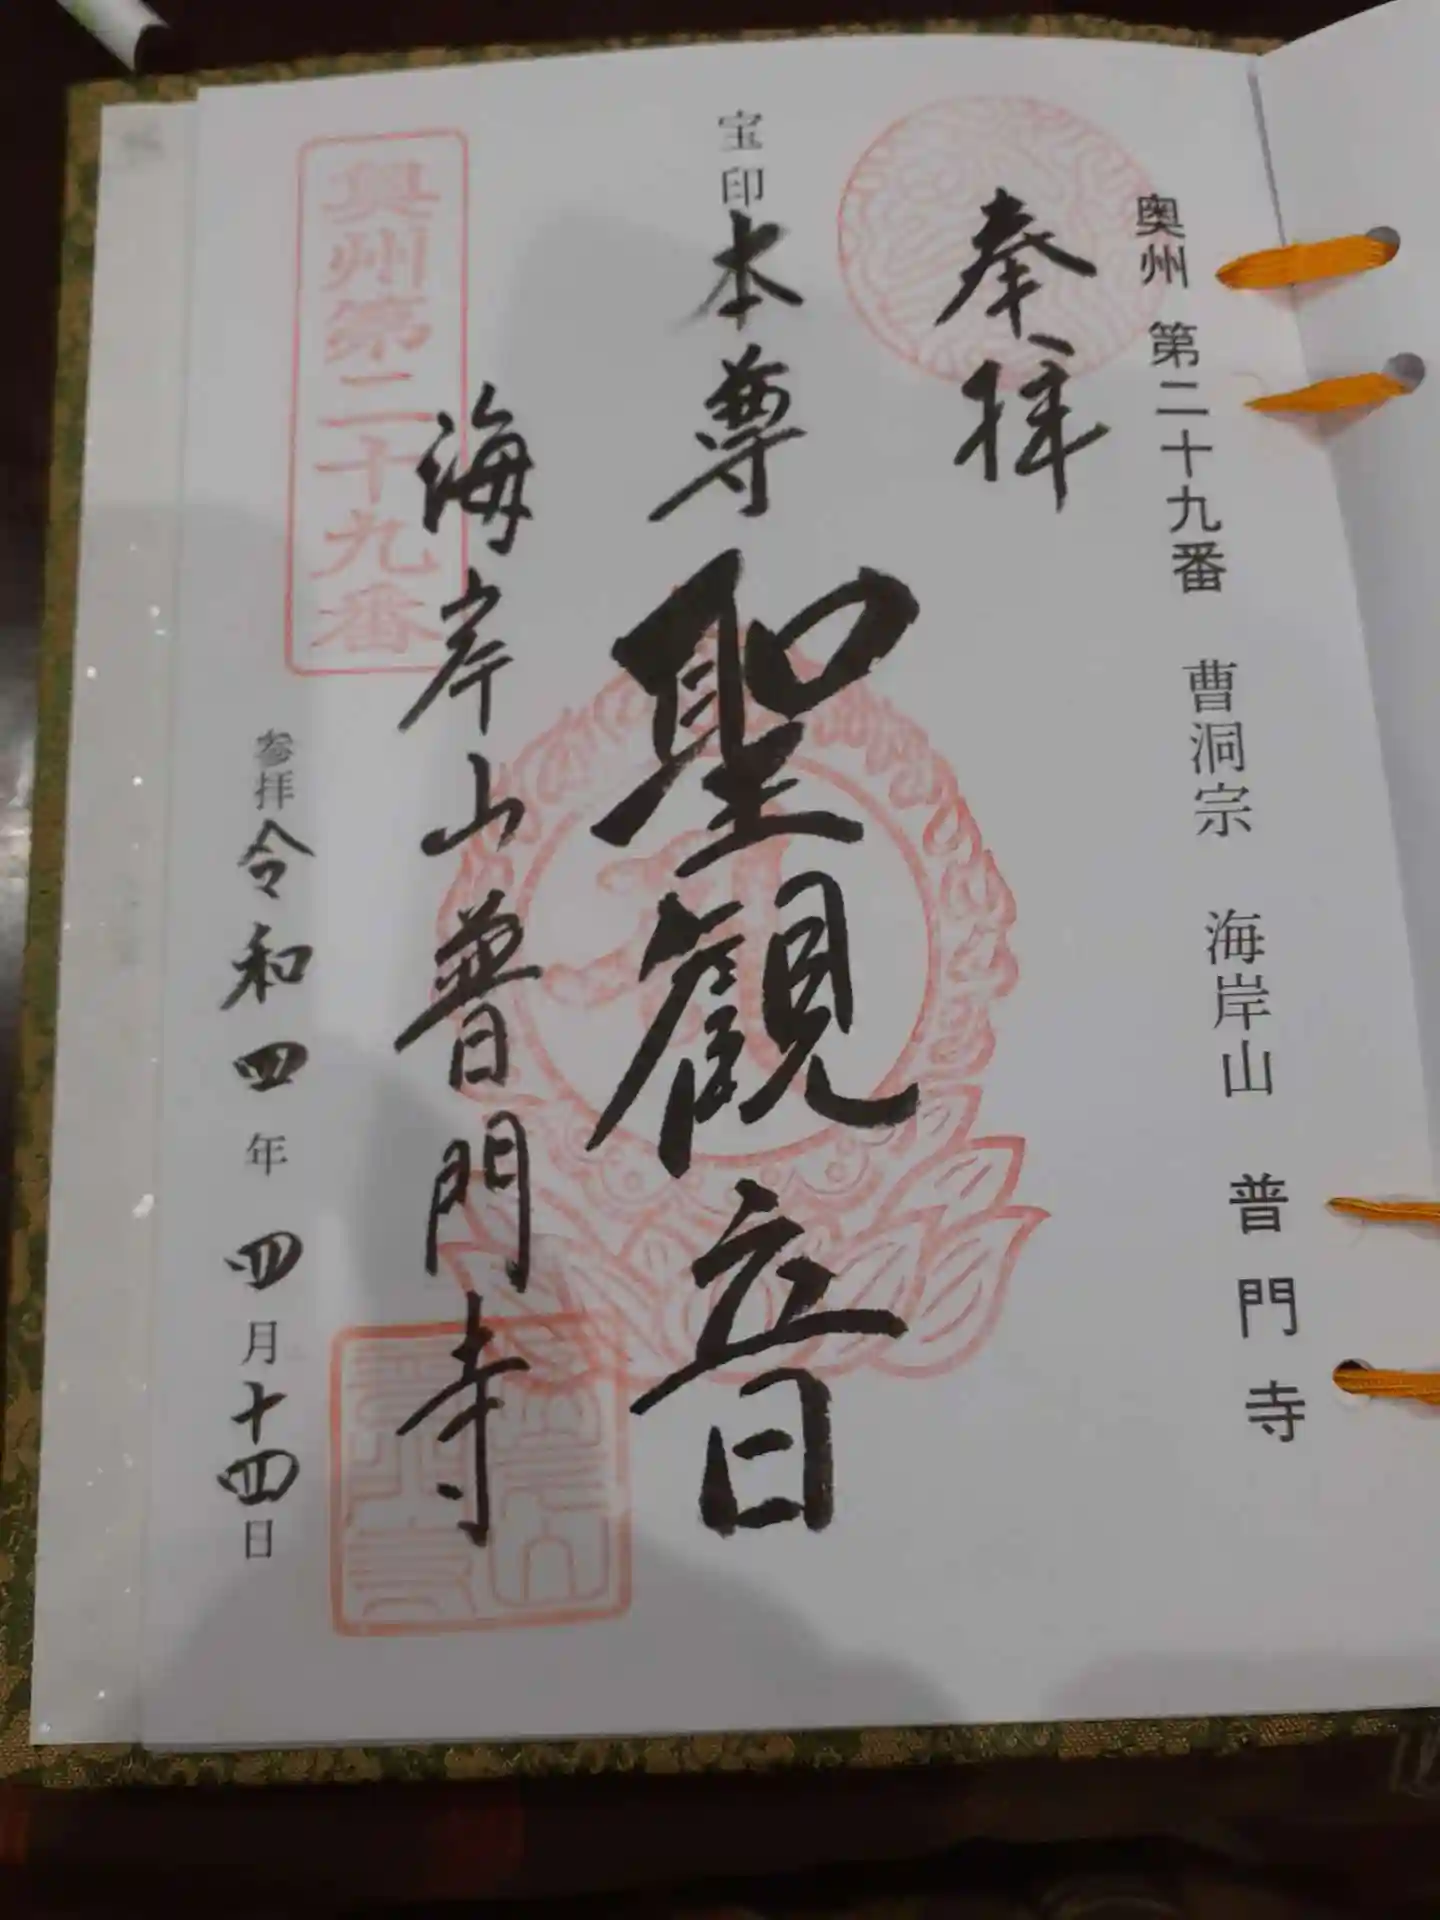 奥州 第二十九番 曹洞宗 海岸山 普門寺
奉拝
宝印
本尊 聖観音
海岸山普門寺
奥州第二十九番
参拝 令和四年 四月十四日